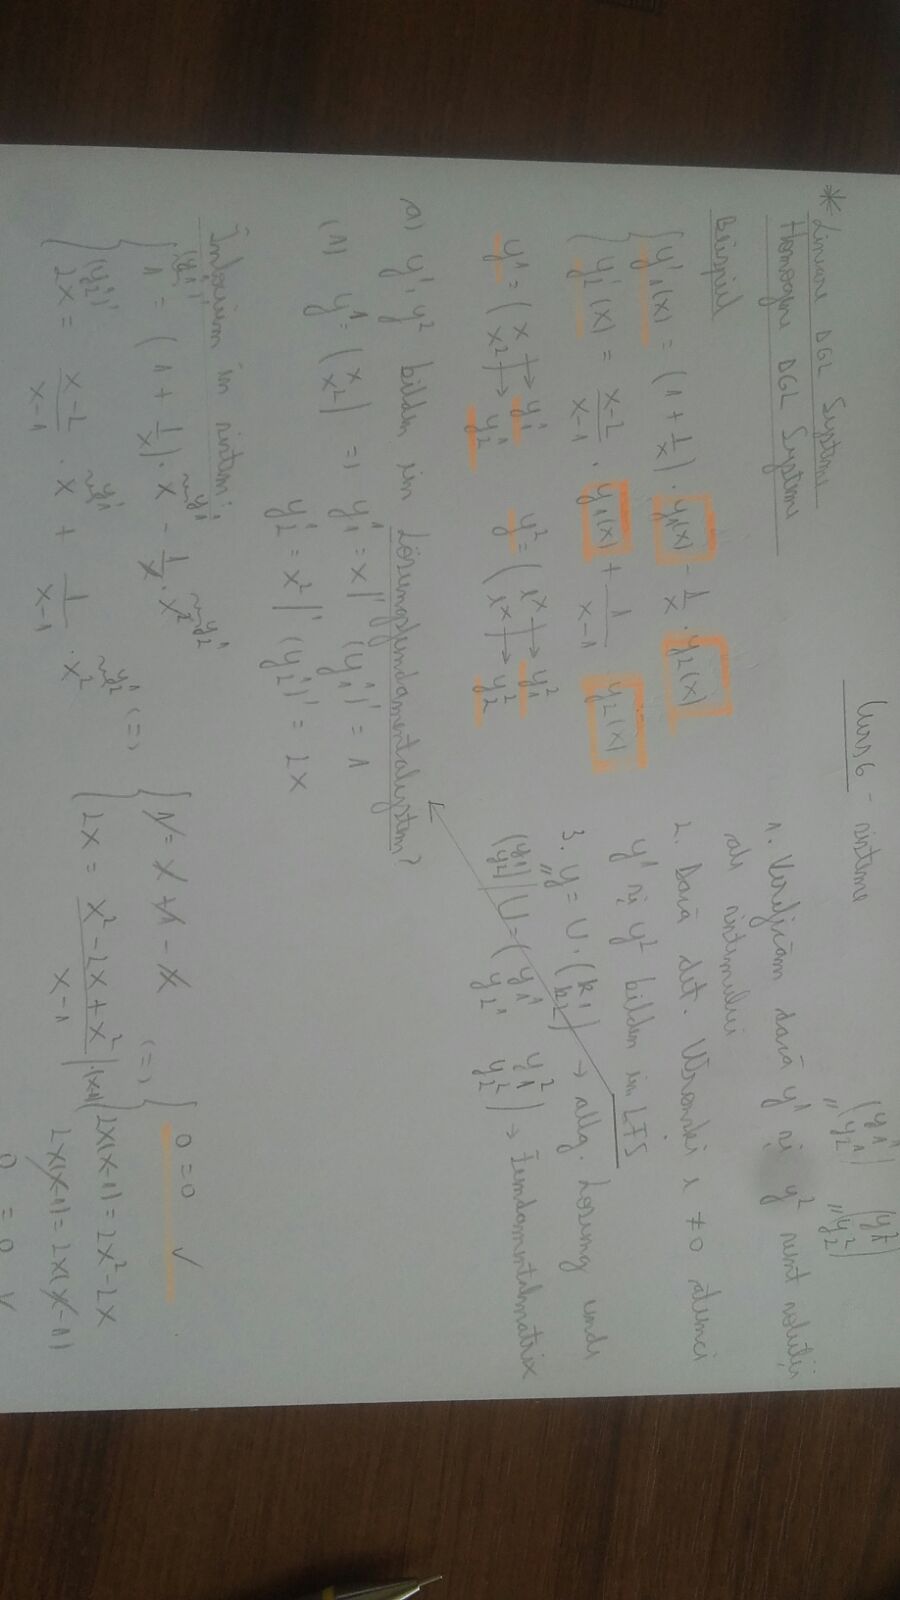 Curs 6 - sisteme
* Lineare DGL Systeme
Homogene DGL Systeme
Beispiel
y'₁(x) = (1 + 1/x) · y₁(x) - 1/x · y₂(x)
y'₂(x) = (x-2)/(x-1) · y₁(x) + 1/(x-1) y₂(x)
y¹ = (x x²) → y₁¹ → y₂¹ y² = (eˣ eˣ) → y₁² → y₂²
(y₁¹ y₂¹) (y₁² y₂²)
1. Verificăm dacă y¹ și y² sunt soluții
ale sistemului
2. Dacă det. Wronski ≠ 0 atunci
y¹ și y² bilden ein LFS
3. y = U · (k₁ k₂) → allg. Lösung und
(y₁ y₂) | U = (y₁¹ y₁² y₂¹ y₂²) → Fundamentalmatrix
a) y¹, y² bilden ein Lösungsfundamentalsystem?
(1) y¹ = (x x²) => y₁¹ = x |' (y₁¹)' = 1
y₂¹ = x² |' (y₂¹)' = 2x
Înlocuim în sistem:
(y₁¹)' y₁¹ y₂¹
1 = (1 + 1/x) · x - 1/x · x² (=) 1 = x + 1 - x (=) 0 = 0 ✓
(y₂¹)' y₁¹ y₂¹
2x = (x-2)/(x-1) · x + 1/(x-1) · x² 2x = (x² - 2x + x²)/(x-1) | ·(x-1) 2x(x-1) = 2x² - 2x
2x(x-1) = 2x(x-1)
0 = 0 ✓